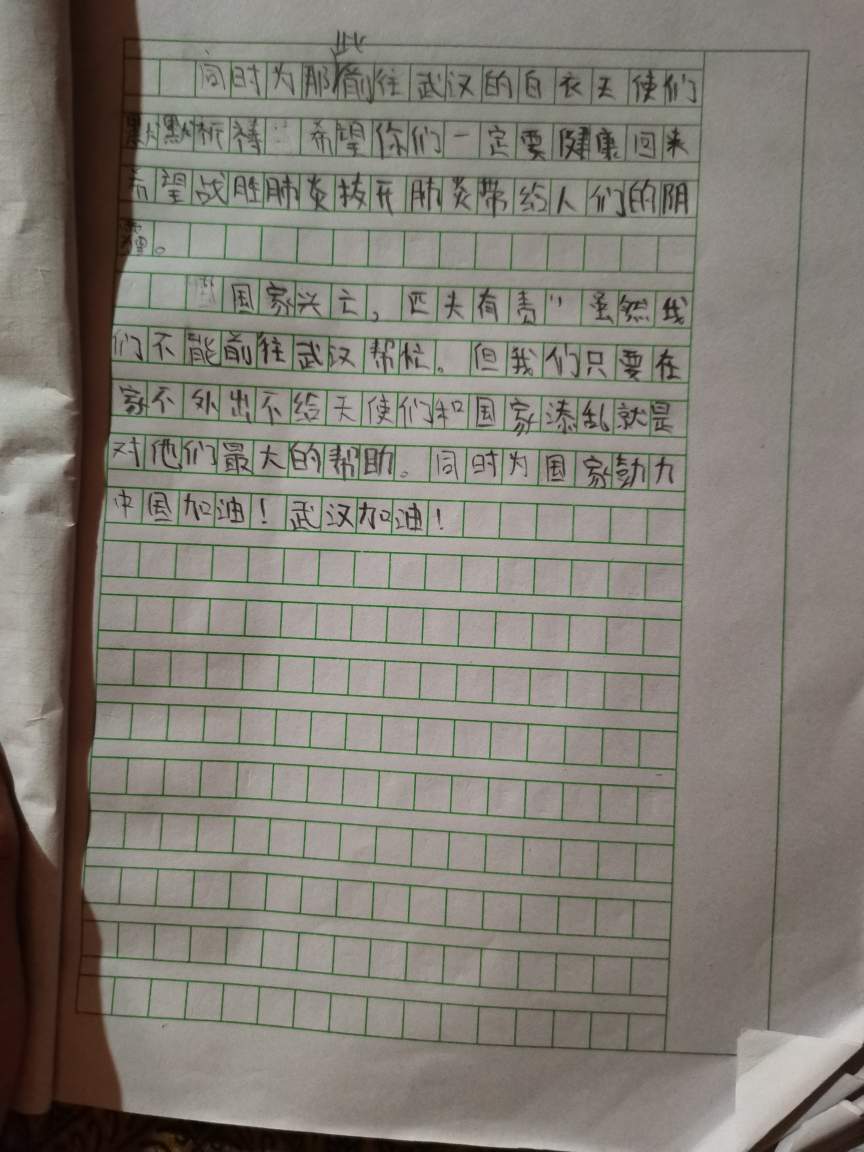 同时为那些前往武汉的白衣天使们
默默祈祷：希望你们一定要健康回来
希望战胜肺炎拨开肺炎带给人们的阴
霾。
国家兴亡，匹夫有责"虽然我
们不能前往武汉帮忙。但我们只要在
家不外出不给天使们和国家添乱就是
对他们最大的帮助。同时为国家助力
中国加油！武汉加油！